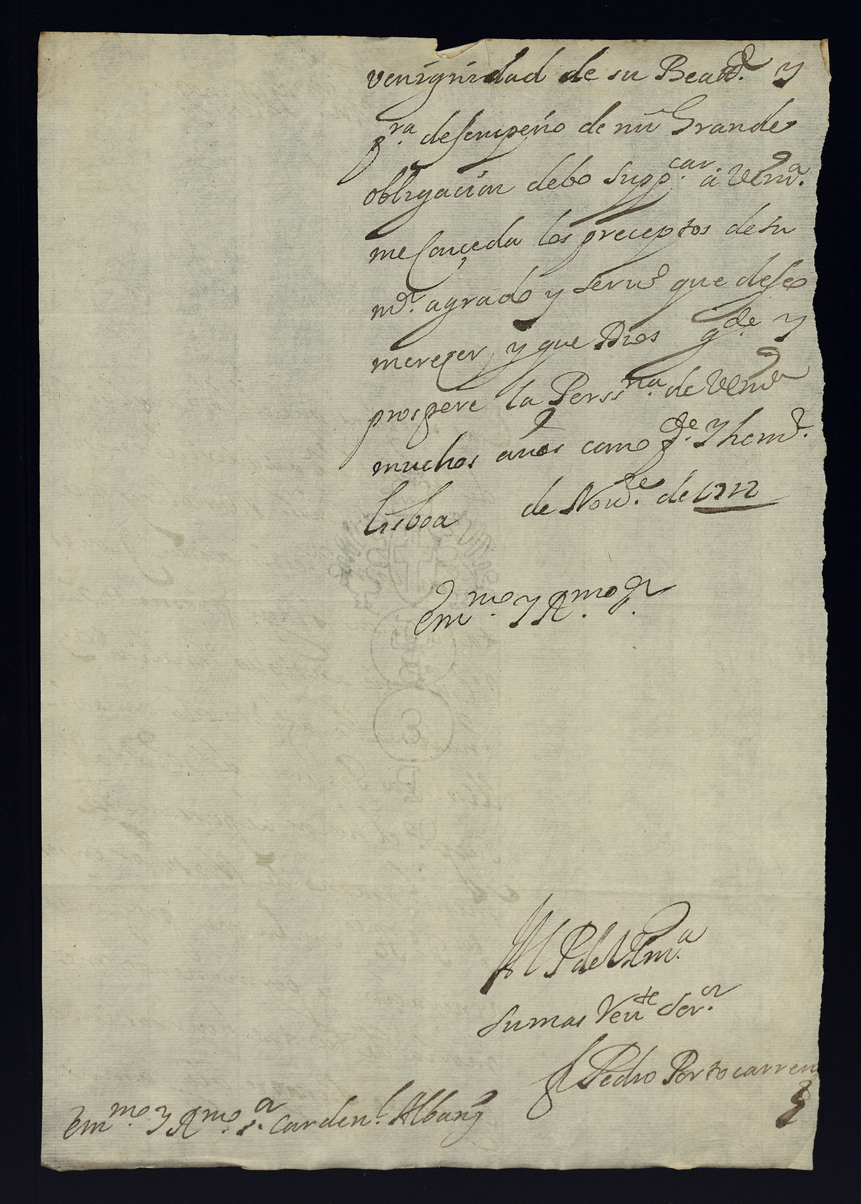 venignidad de su Beatd. y
pra desempeño de mi Grande
obligacion debo suppcar. a VEma.
me Conçeda los preceptos de su
mr. agrado y seruo que deseo
mereçer, y que Dios gde y
prospere la Perssna. de VEma
muchos años como pe.
Lisboa de Noue. de 1712
Emmo. y Rmo. Sr
BLP de VEma.
su mas Reute Seror
Pedro Portocarrero
Emmo. y Rmo. Sr. Cardenl. Albany